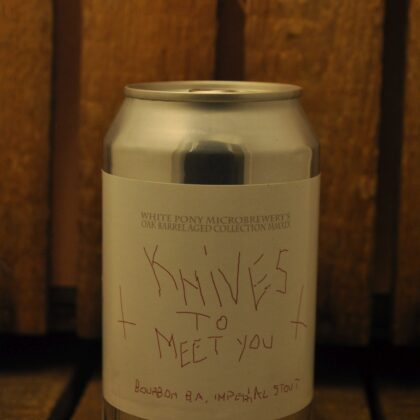 WHITE PONY MICROBREWERY'S
OAK BARREL AGED COLLECTION MMXIX
KNIVES
TO
MEET YOU
BOURBON B.A. IMPERIAL STOUT